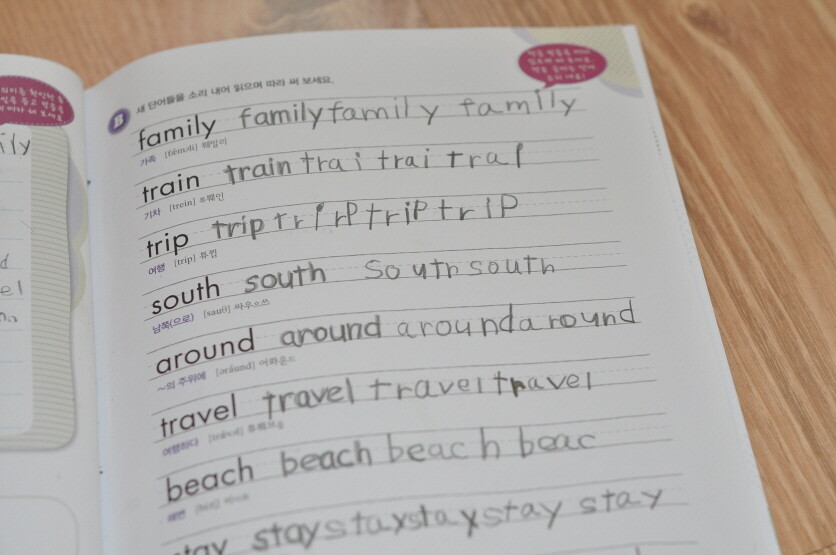 새 단어들을 소리 내어 읽으며 따라 써 보세요.
B
family family family family
가족 [fǽməli] 패밀리
train train trai trai traI
기차 [trein] 트뤠인
trip trip trIrP triP trIP
여행 [trip] 튜륍
south south South south
남쪽(으로) [sauθ] 싸우으쓰
around around around around
~의 주위에 [əráund] 어롸운드
travel travel travel travel
여행하다
beach beach beach beac
해변
stay stay stay stay stay stay
ily
d
el